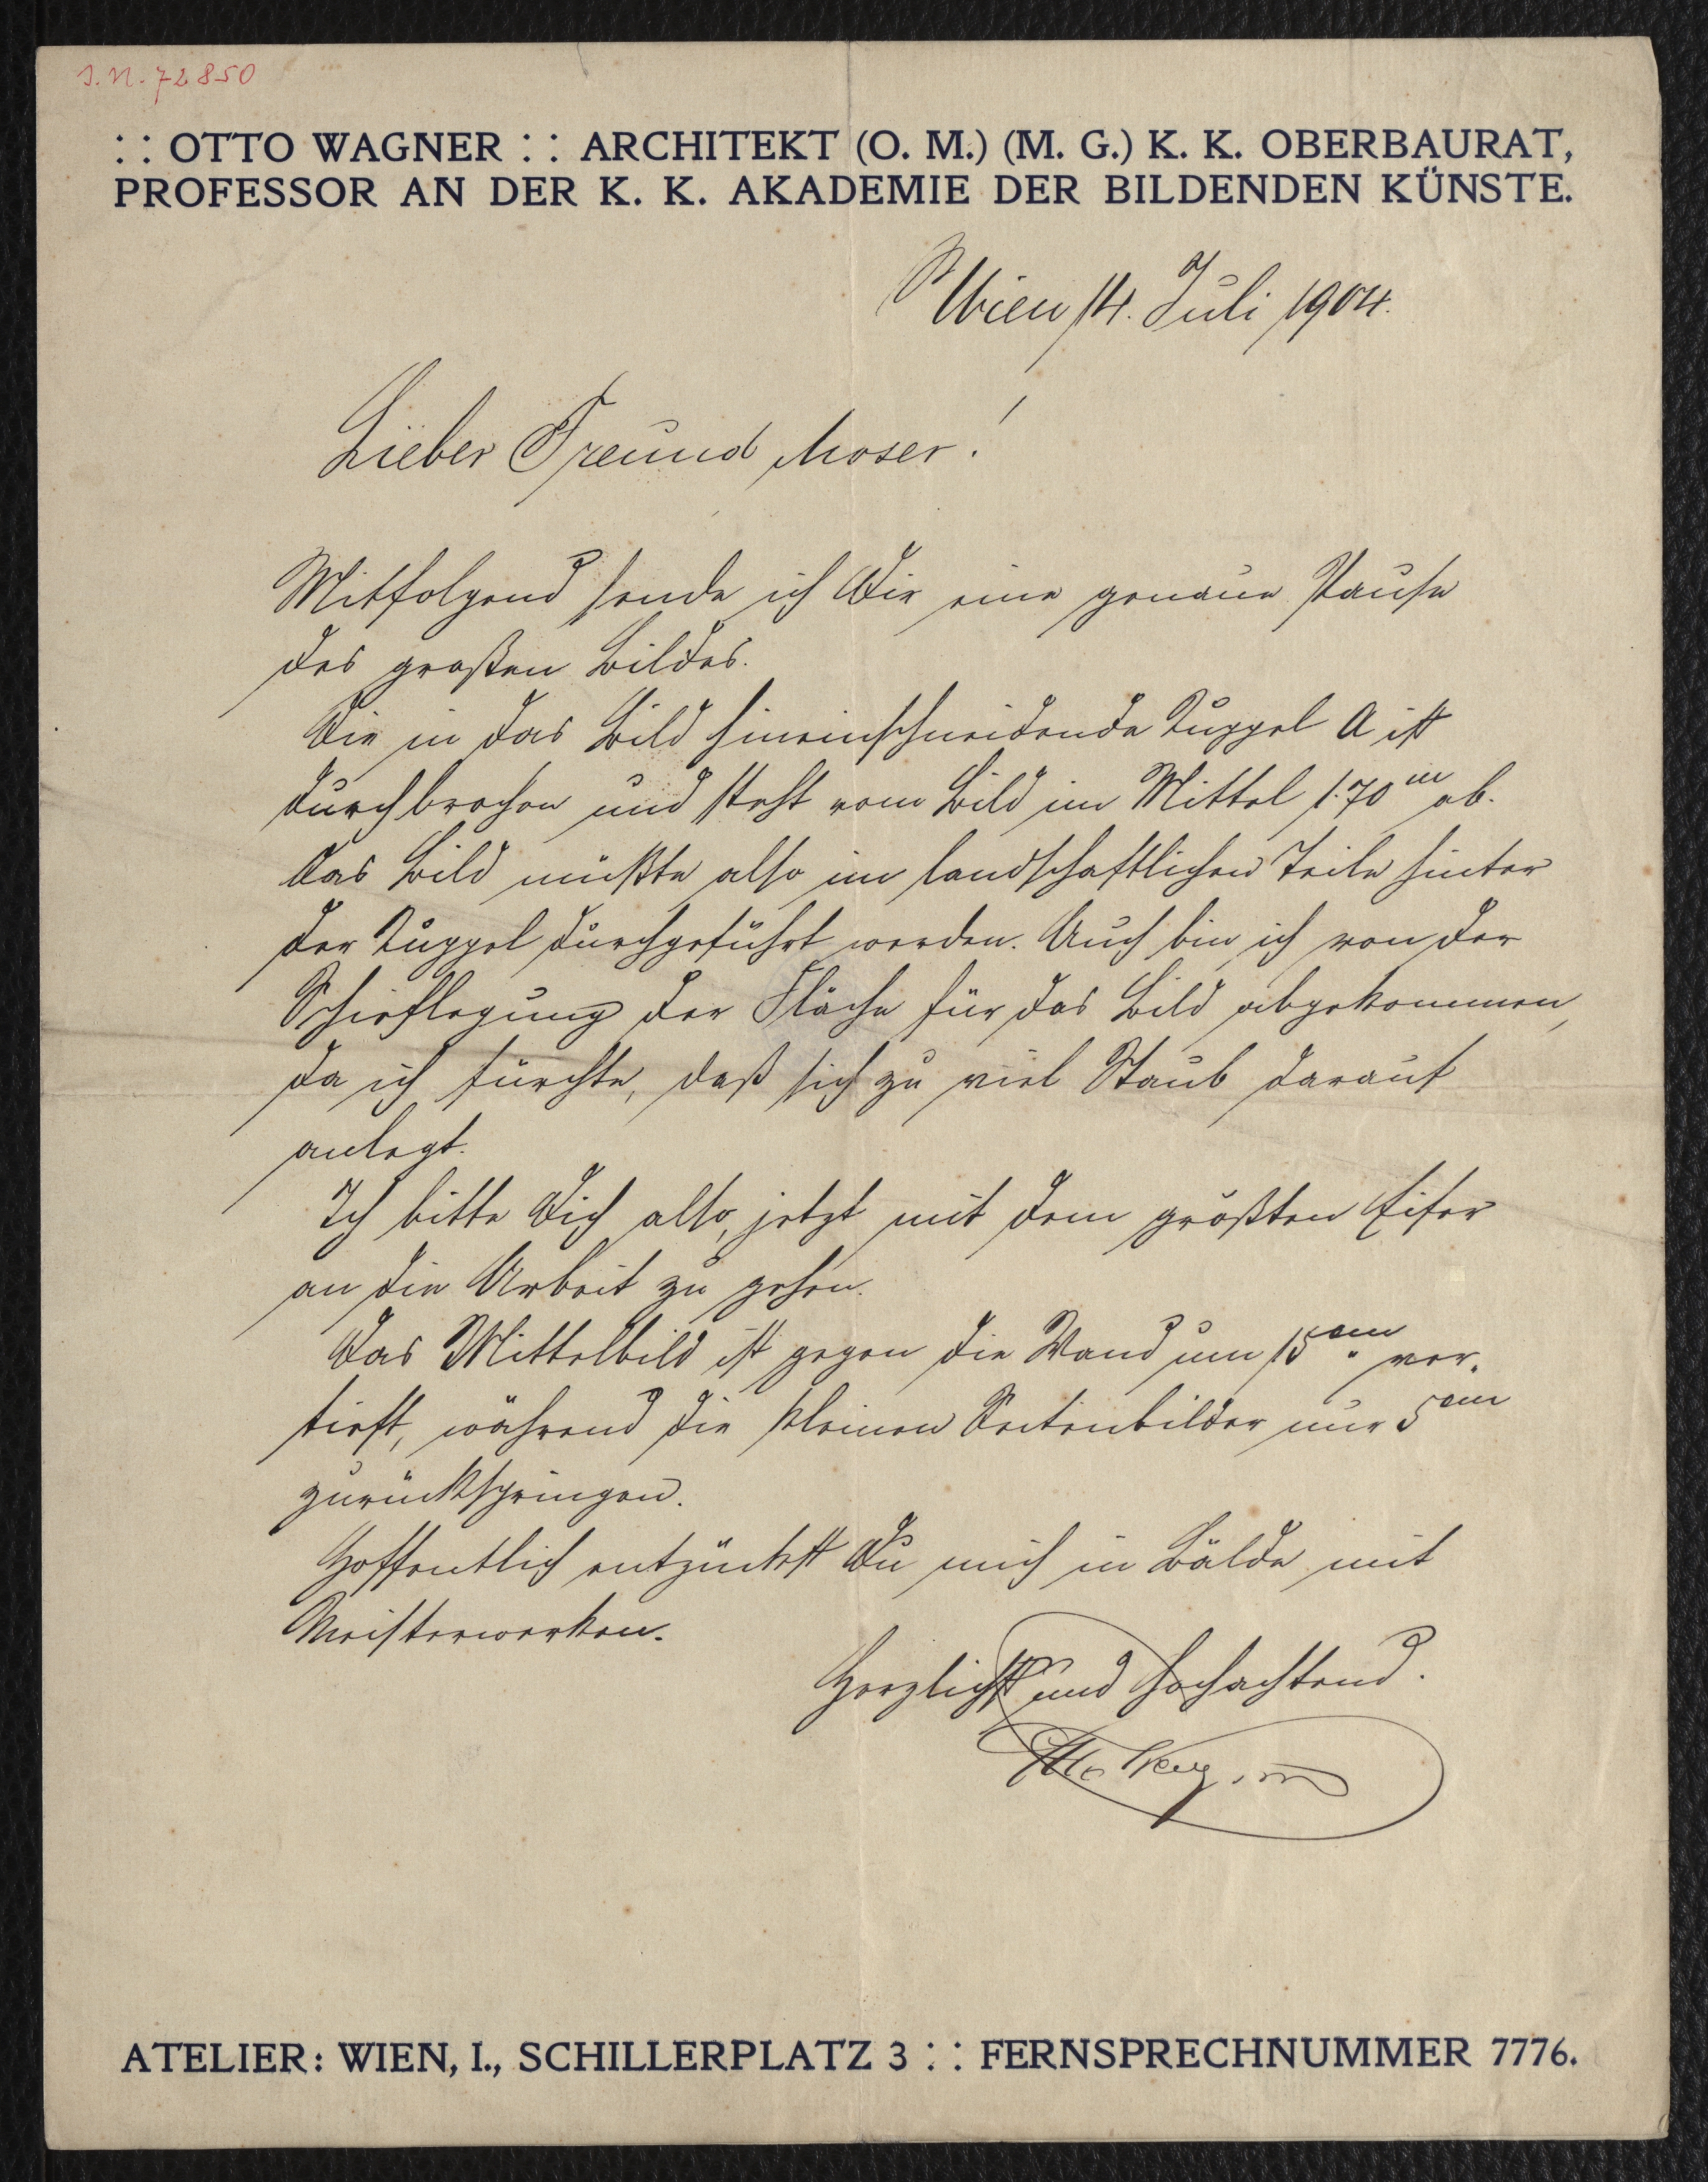 J. N. 72850
: : OTTO WAGNER : : ARCHITEKT (O. M.) (M. G.) K. K. OBERBAURAT,
PROFESSOR AN DER K. K. AKADEMIE DER BILDENDEN KÜNSTE.
Wien 14. Juli 1904.
Lieber Freund Moser!
Mitfolgend sende ich Dir eine genaue Pause
des großen Bildes.
Die in das Bild hineinschneidende Kuppel A ist
durchbrochen und steht vom Bild im Mittel 1.70 m ab.
Das Bild müßte also im landschaftlichen Teile hinter
der Kuppel durchgeführt werden. Auch bin ich von der
Schieflegung der Fläche für das Bild abgekommen,
da ich fürchte, daß sich zu viel Staub darauf
anlegt.
Ich bitte Dich also, jetzt mit dem größten Eifer
an die Arbeit zu gehen.
Das Mittelbild ist gegen die Wand um 15 cm. ver-
tieft, während die kleinen Seitenbilder nur 5 cm
zurückspringen.
Hoffentlich entzückst Du mich in Bälde mit
Meisterwerken.
Herzlichst und hochachtend.
Otto Wagner
ATELIER: WIEN, I., SCHILLERPLATZ 3 : : FERNSPRECHNUMMER 7776.